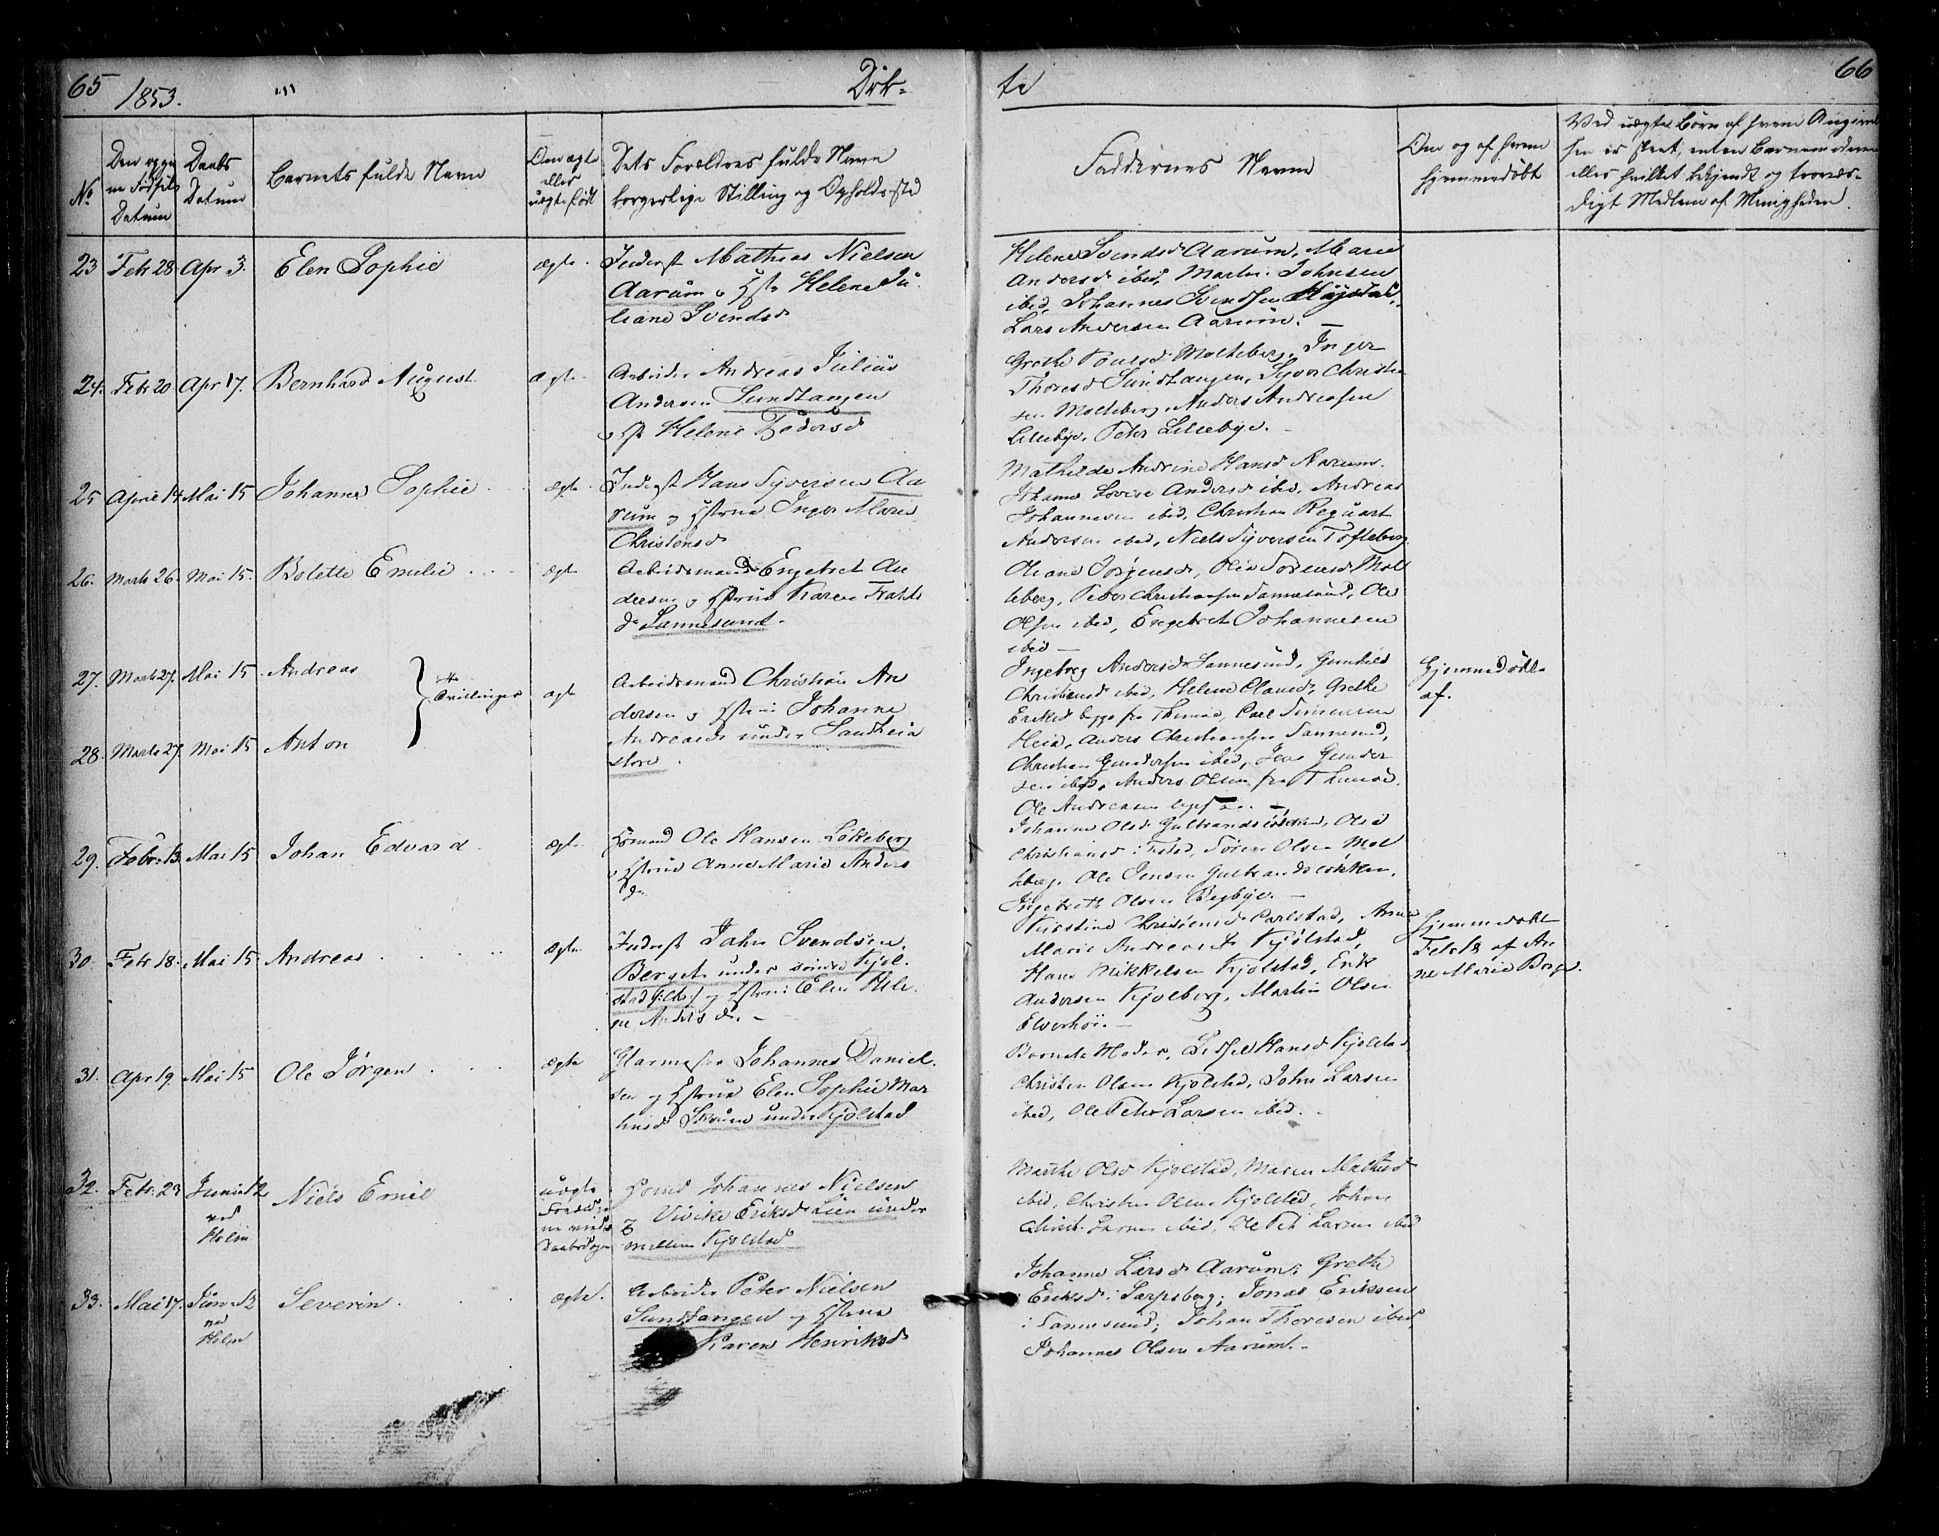 65
1853.
Dök-
te
66
No
Den opgivne Fødsels Datum
Daabs Datum
Barnets fulde Navn
Om ægte eller uægte født
Dets Forældres fulde Navn
borgerlige Stilling og Opholdssted
Faddernes Navne
Om og af hvem
hjemmedøbt
Ved uægte Børn af hvem Angivel
sen er skeet, enten Barnemoderen
eller hvilket bekjendt og troevær-
digt Medlem af Menigheden.
23 Febr 28 Apr 3. Elen Sophie ægte
Inderst Mathias Nielsen
Aarum o Hst Helene Ju
liane Svendsd
Helene Svendsd Aarum, Maren
Andersd ibid, Martin Johnsen
ibid, Johannes Svendsen
Lars Andersen Aarum. —
24. Febr 20 Apr 17. Bernhard August ægte
Arbeider Andreas Julius
Andersen Sundtangen
o Hst Helene Pedersd
Grethe Poulsd Molteberg, Inger
Thoresd Sundtangen, Syver Christen
sen Molteberg, Anders Andreasen
Lillebye, Peter Lillebye. -
25 April 14 Mai 15 Johanne Sophie ægte
Inderst Hans Syversen Aa
rum og Hstrue Inger Marie
Christensd
Mathilde Andrine Hansd Aarum.
Johanne Lovise Andersd ibid, Andreas
Johannesen ibid, Christian
Andersen ibid, Niels Syversen Tofteberg.
26. Marts 26. Mai 15. Bolette Emilie ægte
Arbeidsmand Engebret An
dersen o Hstrue Karen
Sannesund.
Oleane Jørgensd, Olea Sørensd Mol
teberg, Peder Christiansen Sannesund, Ole
Olsen ibid, Engebret Johannesen
ibid —
27. Marts 27. Mai 15 Andreas
Tvillinger ægte
28. Marts 27. Mai 15 Anton
Arbeidsmand Christian An
dersen o Hstrue Johanne
Andreasd under Sandheia
store.
Ingeborg Andersd Sannesund, Gunhild
Christiansd ibid, Helene Clausd, Grethe
Eriksd begge fra Thunøe, Carl Simensen
Heia, Anders Christiansen Sannesund,
Christian Gundersen ibid, Jens Gunder
sen ibid, Anders Olsen fra Thunøe
Ole Andreasen
Hjemmedøbt
af.
29. Febr. 13 Mai 15 Johan Edvard ægte
Ole Hansen Løkkeberg
o Hstrue Anne Marie Anders
d.
Johanne Olsd Gulbrandsløkken, Olea
Christiansd Søren Olsen Mol
teberg, Ole Jensen Gulbrandsløkken,
Ingebreth Olsen Begbye. —
30. Febr 18. Mai 15 Andreas ægte
Inderst John Svendsen
Berget under søndre Kjøl
stad og Hstrue Elen Hele
ne Andersd. -
Kirstine Christensd Carlstad, Anne
Marie Andreasd Kjølstad,
Hans Mikkelsen Kjølstad, Erik
Andersen Kjølberg, Martin Olsen
Elverhøi. —
Hjemmedøbt
Feb 18 af An
ne Marie Berge.
31. Apr 19. Mai 15 Ole Jørgen ægte
Glarmester Johannes Daniel
sen og Hstrue Elen Sophie Mar
tinsd under Kjølstad
Barnets Moder, Hansd Kjølstad
Christen Olsen Kjølstad, John Larsen
ibid, Ole Peter Larsen ibid.
32. Febr. 23 Juni 12 ved Holm Niels Emil uægte
Johannes Nielsen
& Vivike Eriksd Lien under
mellem Kjølstad
Marthe Olsd Kjølstad, Maren Mathisd
ibid, Christen Olsen Kjølstad, Johan
Christ. Larsen ibid, Ole Pet. Larsen ibid
33. Mai 17. Juni 12 ved Holm Severin. ægte.
Arbeider Peter Nielsen
Sundtangen og Hstrue
Karen Henriksd
Johanne Larsd Aarum; Grethe
Eriksd i Sarpsborg; Jonas Eriksen
i Sannesund; Johan Thoresen ibid
Johannes Olsen Aarum. -